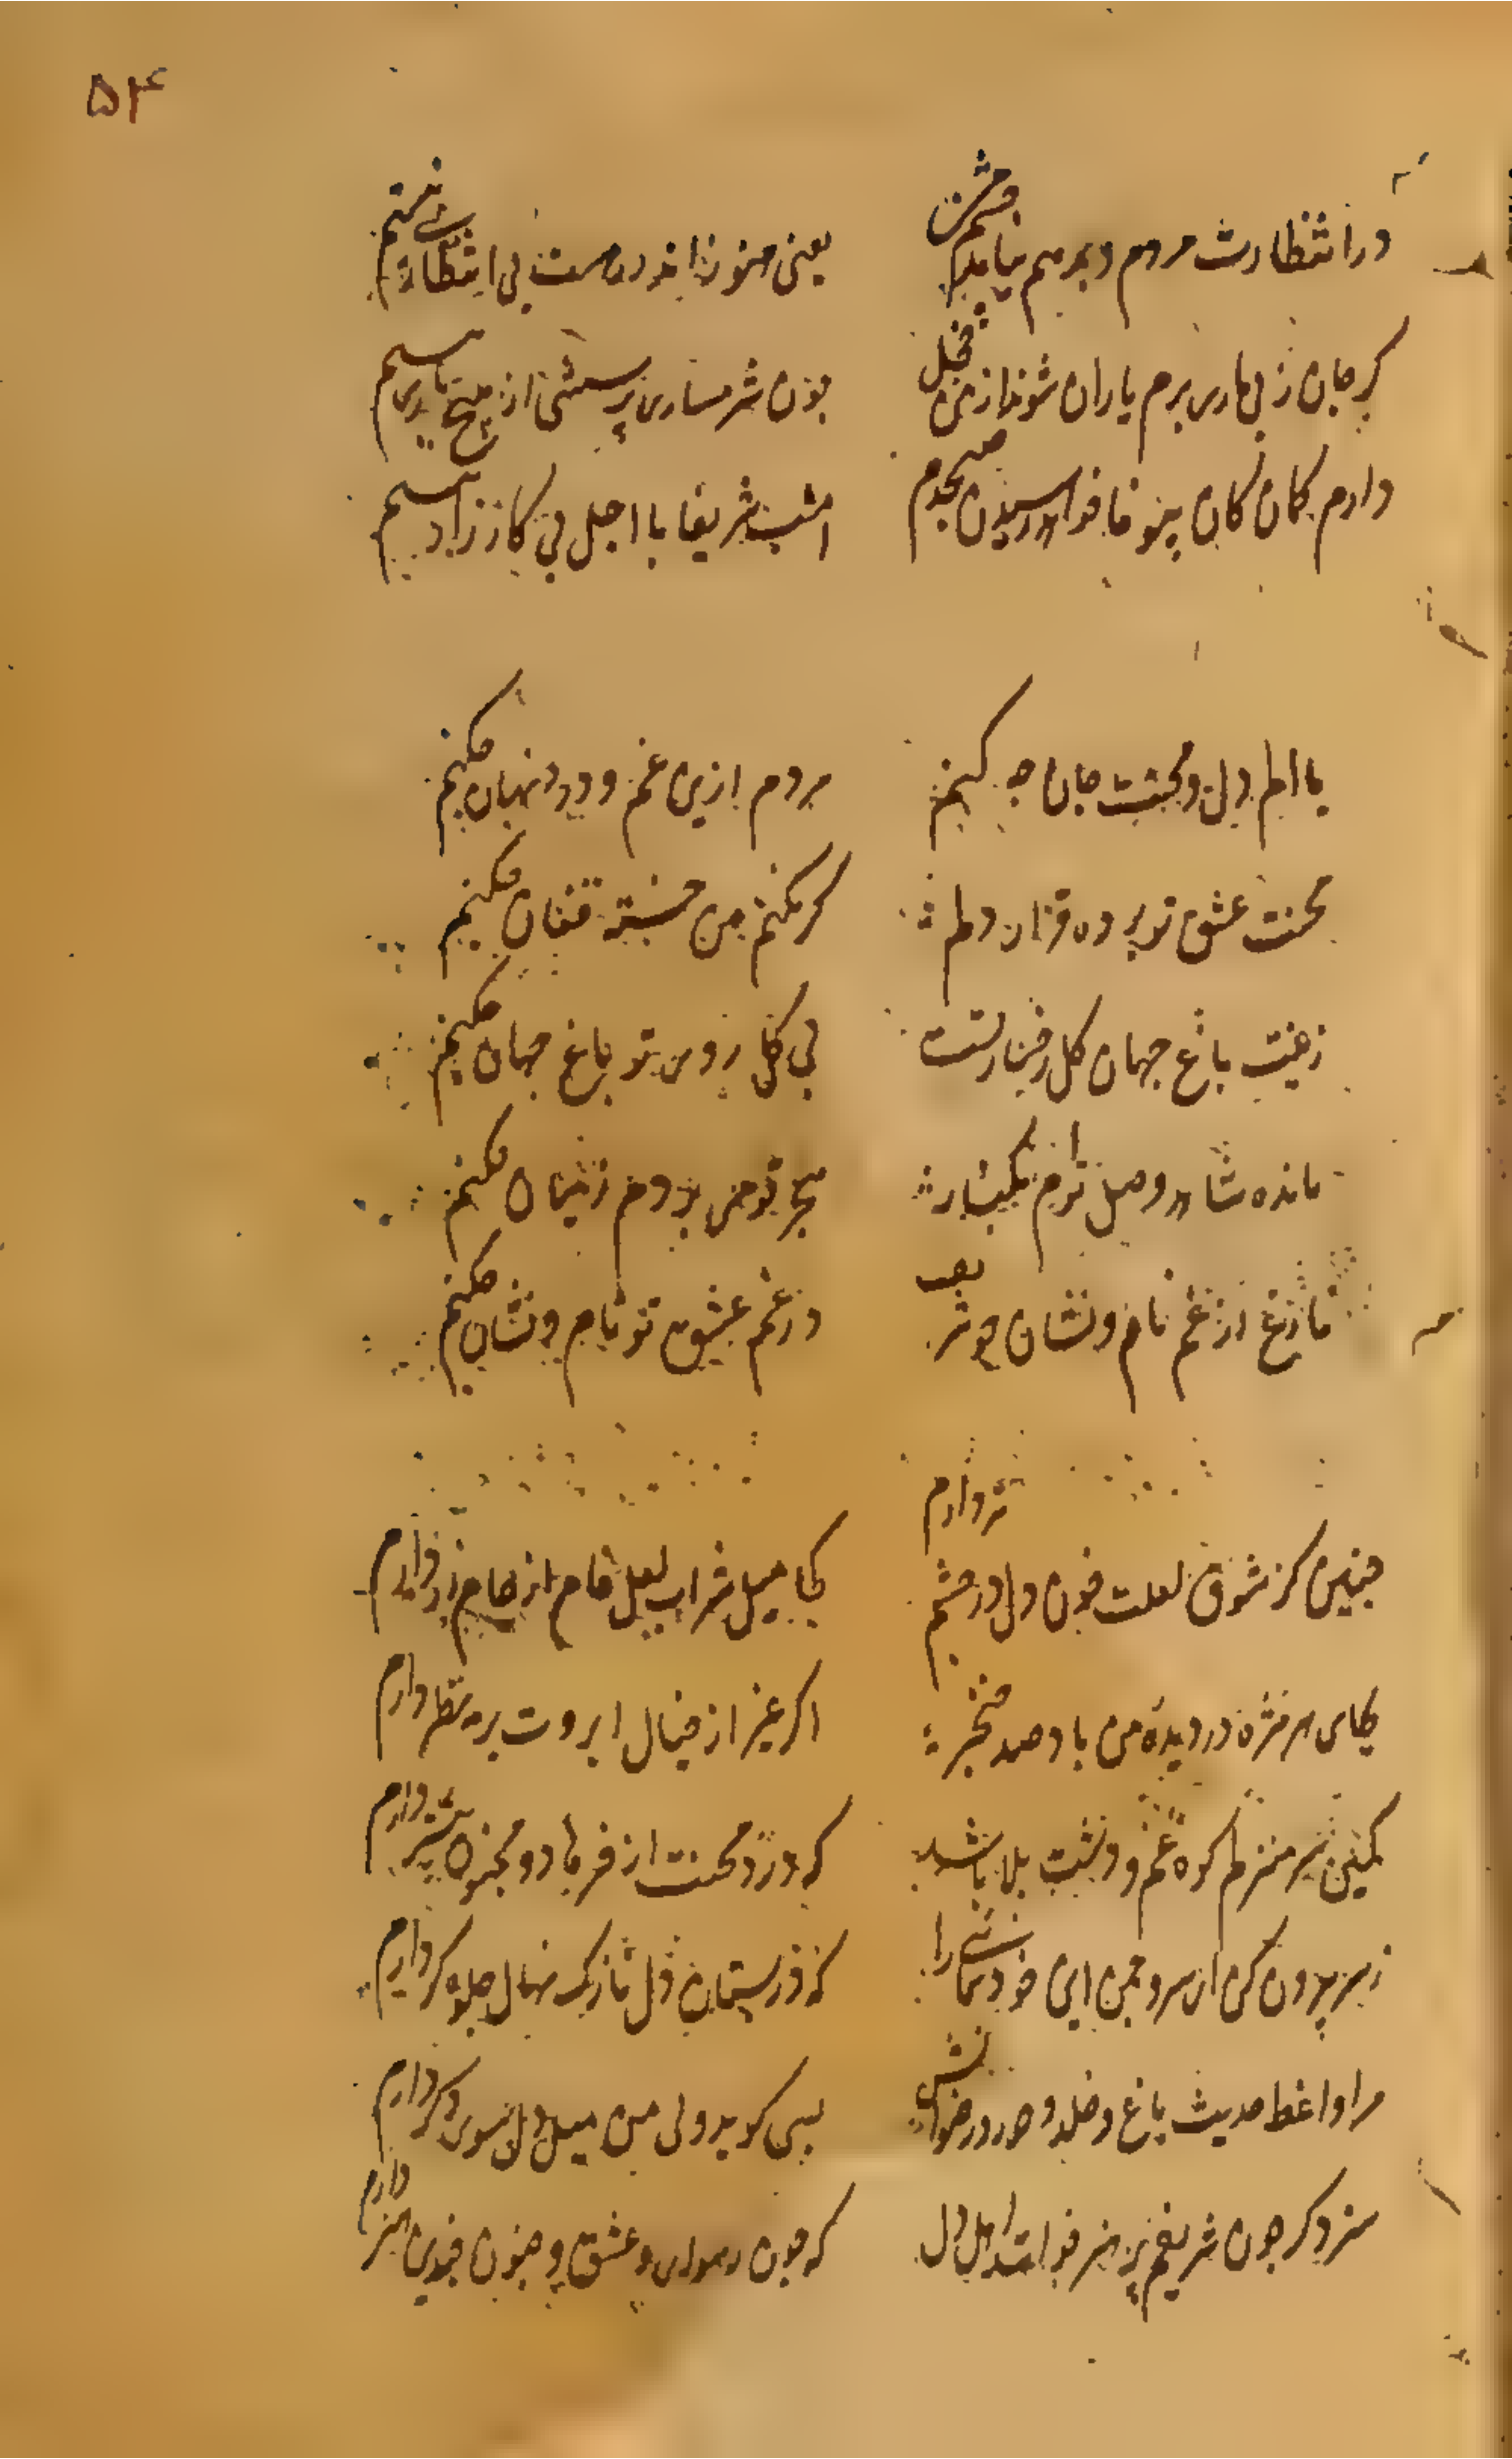 ۵۴
در انتظارت مردم و بر هم نیاید چشم من
یعنی هنوز اندر رهت بی انتظاری نیستم
کر جان ز بی یاری برم یاران شوند از من خجل
چون شرمساری پرسشی از هیچ یاری نیستم
دارم کمان کان بیوفا خواهد رسیدن صبحدم
امشب شریفا با اجل بی کارزاری نیستم
با الم دل و محنت جان چه کنم
مردم ازین غم و درد نهان چکنم
محنت عشق تو برده قرار دلم
کر نکنم من خسته فغان چکنم
زینت باغ جهان کل رخسار تست
بی کل روی تو باغ جهان چکنم
مانده شاد وصل توام یکبار
هجر تو می بردم ز میان چکنم
فارغ از غم نام و نشان چو شریف
در غم عشق تو نام و نشان چکنم
چنین کز شوق لعلت خون دل در چشم تر دارم
کجا میل شراب لعل فام از جام زر دارم
بجای هر مژه در دیده من باد صد خنجر
اکر غیر از خیال ابروت مد نظر دارم
کمین سر منزلم کوه غم و دشت بلا باشد
که درد و محنت از فرهاد و مجنون بیشتر دارم
ز سر بیرون کن ای سرو چمن این خودنمائی را
که در بستان دل نازک نهال جلوه کر دارم
مرا واعظ حدیث باغ و خلد و حور و رضوانش
بسی کوید ولی من میل دل سوی دکر دارم
سزد کر چون شریفم پر هنر خوانند اهل دل
که چون رسوایی و عشق و جنون چندین هنر دارم